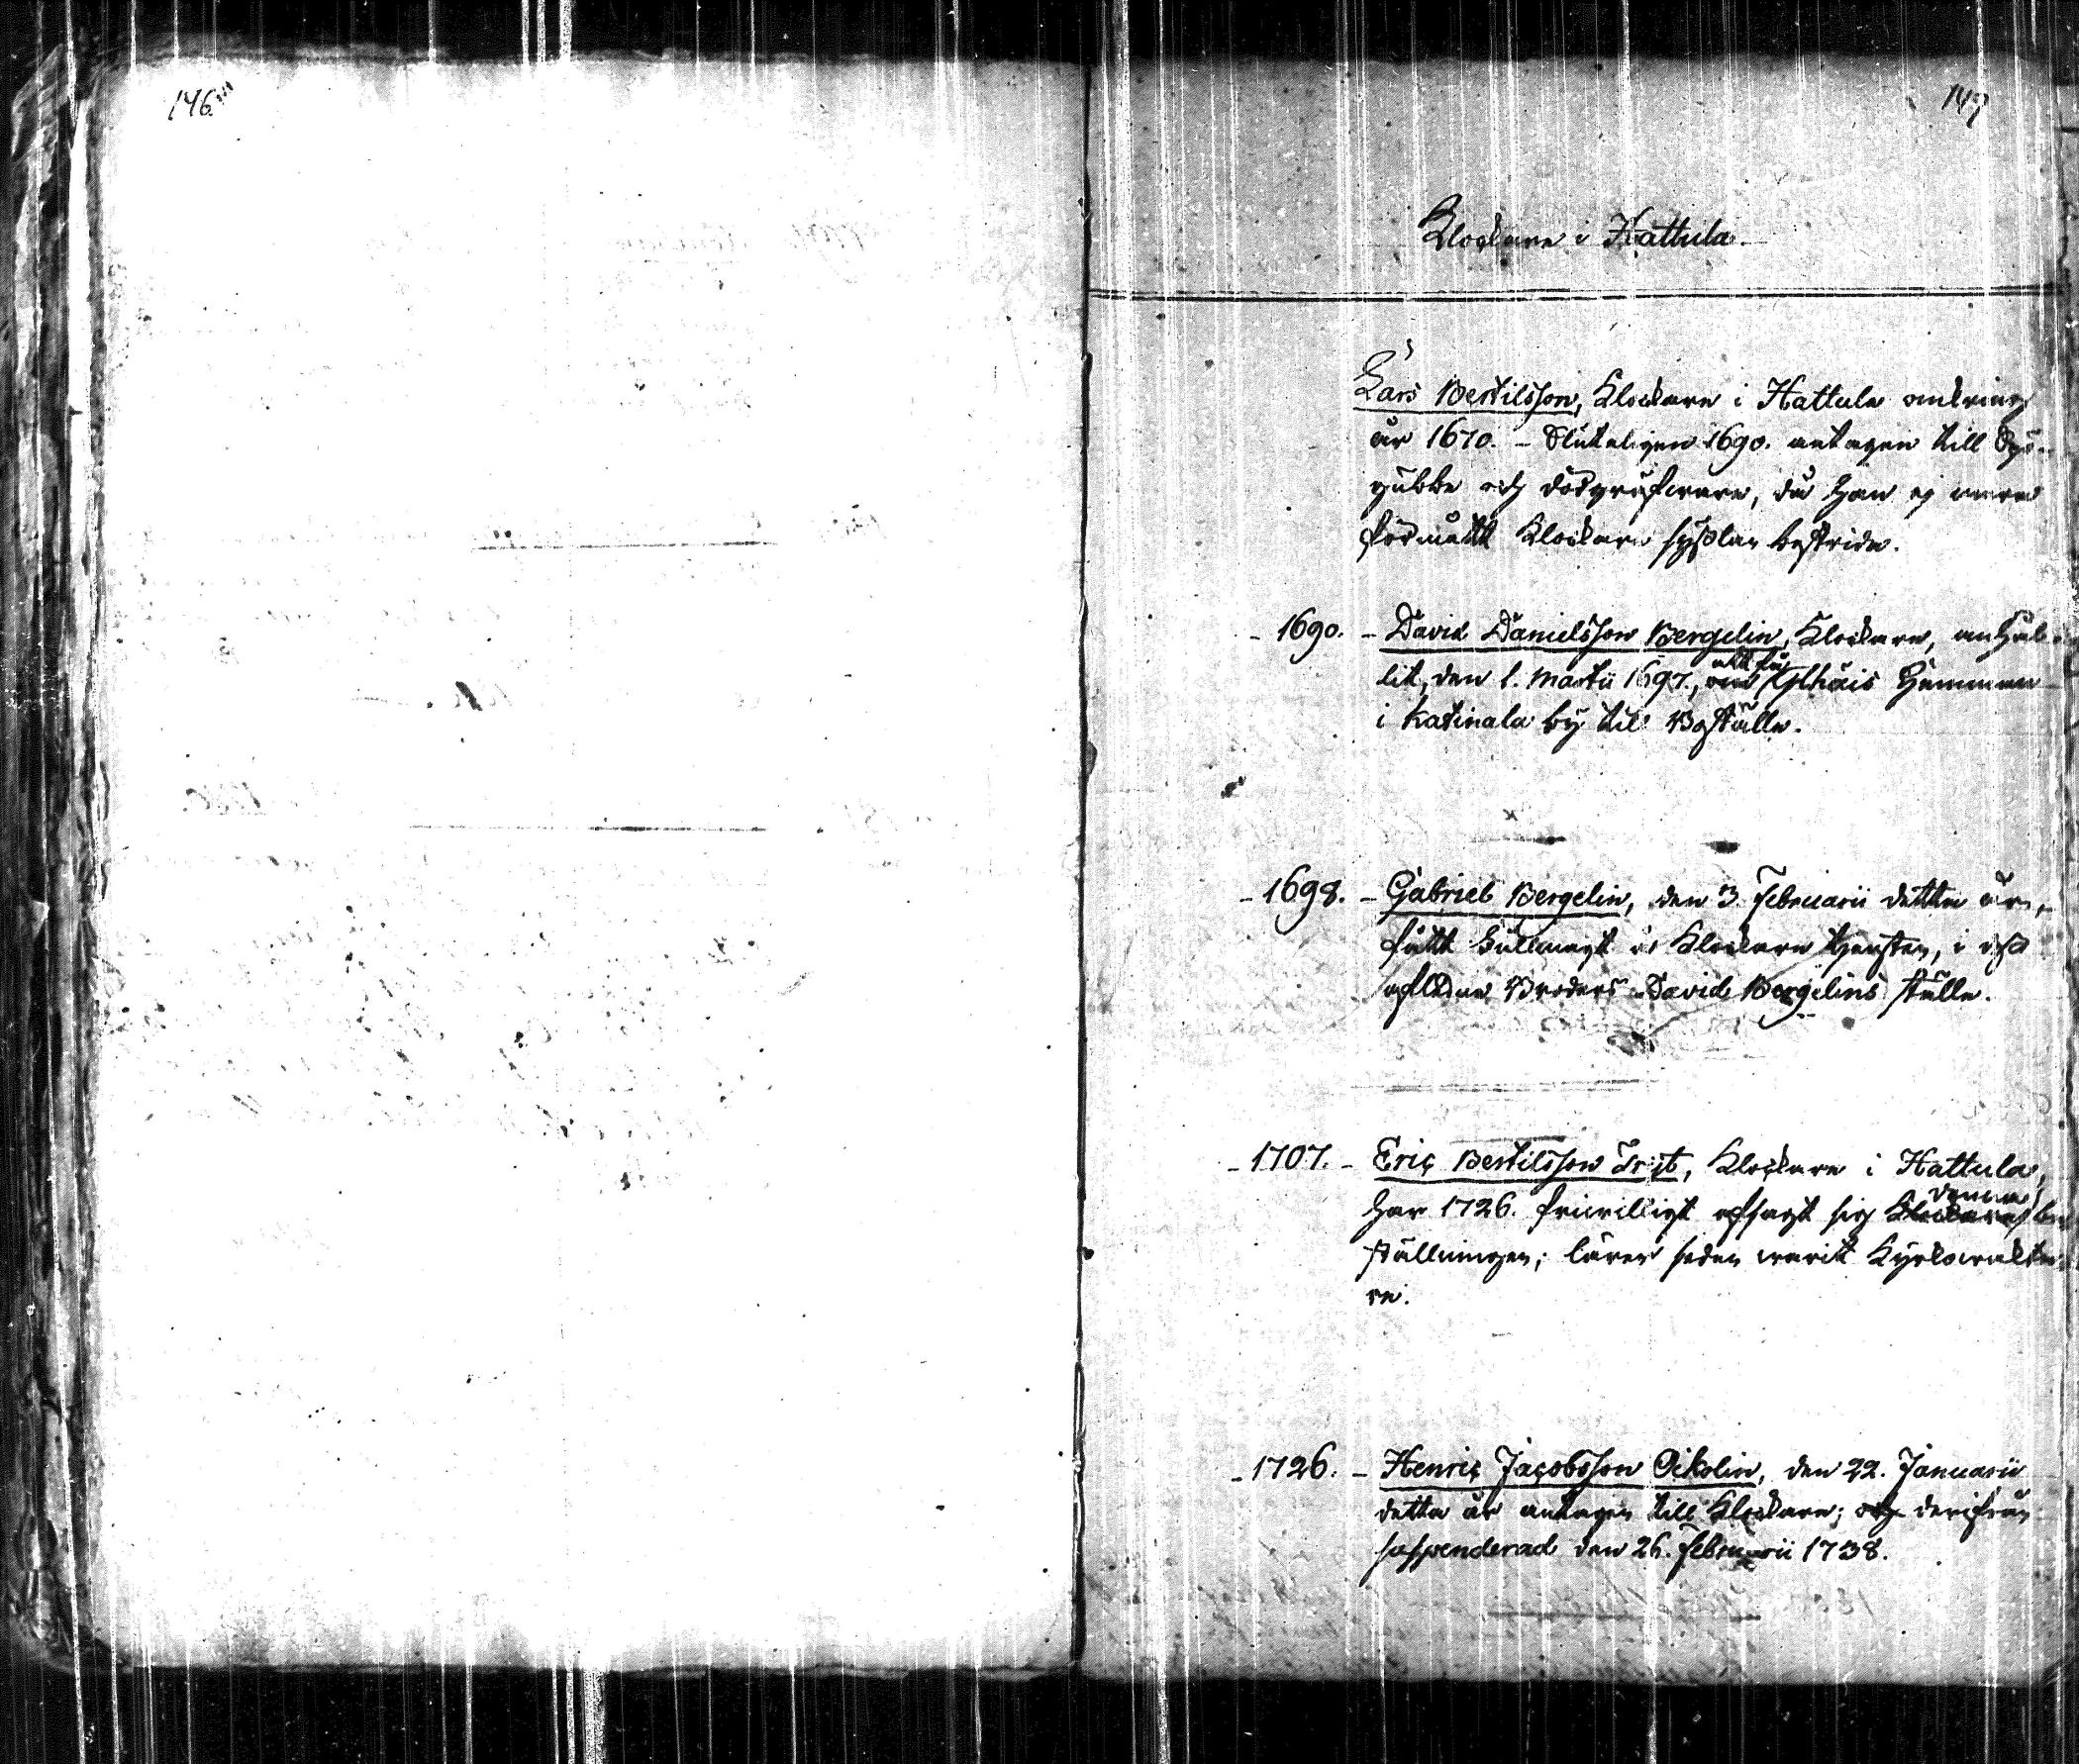 146.
147
Klockare i Hattula
Lars Bertilsson, Klockare i Hattula omkring
år 1670. – Sluteligen 1690. antagen till Spö-
gubbe och dödgräfware, då han ej mera
förmått Klockare syßlan bestrida.
– 1690. – David Danielsson Bergelin, Klockare, anhål-
lit, den 1. Martii 1697., att få Ylhäis Hemman
i Katinala by til Boställe.
– 1698. – Gabriel Bergelin, den 3. Februarii detta år,
fått fullmagt å Klockare tjensten, i deß
aflidne Broders David Bergelins ställe.
– 1707. – Eric Bertilsson, Klockare i Hattula,
har 1726. friwilligt afsagt sig denna be-
ställningen; lärer sedan warit Kyrkowakta-
re.
– 1726. – Henric Jacobsson Oikolin, den 22. Januarii
detta år antagen till Klockare; och derifrån
suspenderad den 26. Februarii 1738.